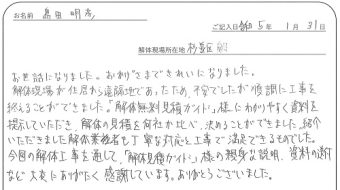 お名前 島田 明彦
ご記入日 令和 5 年 1 月 31 日
解体現場所在地 杉並区
お世話になりました。おかげさまできれいになりました。
解体現場が住居から遠隔地であったため、不安でしたが順調に工事を
終えることができました。「解体無料見積ガイド」様にわかりやすく資料を
提示していただき、解体の見積を何社か比べ、決めることができました。紹介
いただきました解体業者も丁寧な対応と工事で満足できるものでした。
今回の解体工事を通して、「解体見積ガイド」様の親身な説明、資料の
など大変にありがたく感謝しています。ありがとうございました。